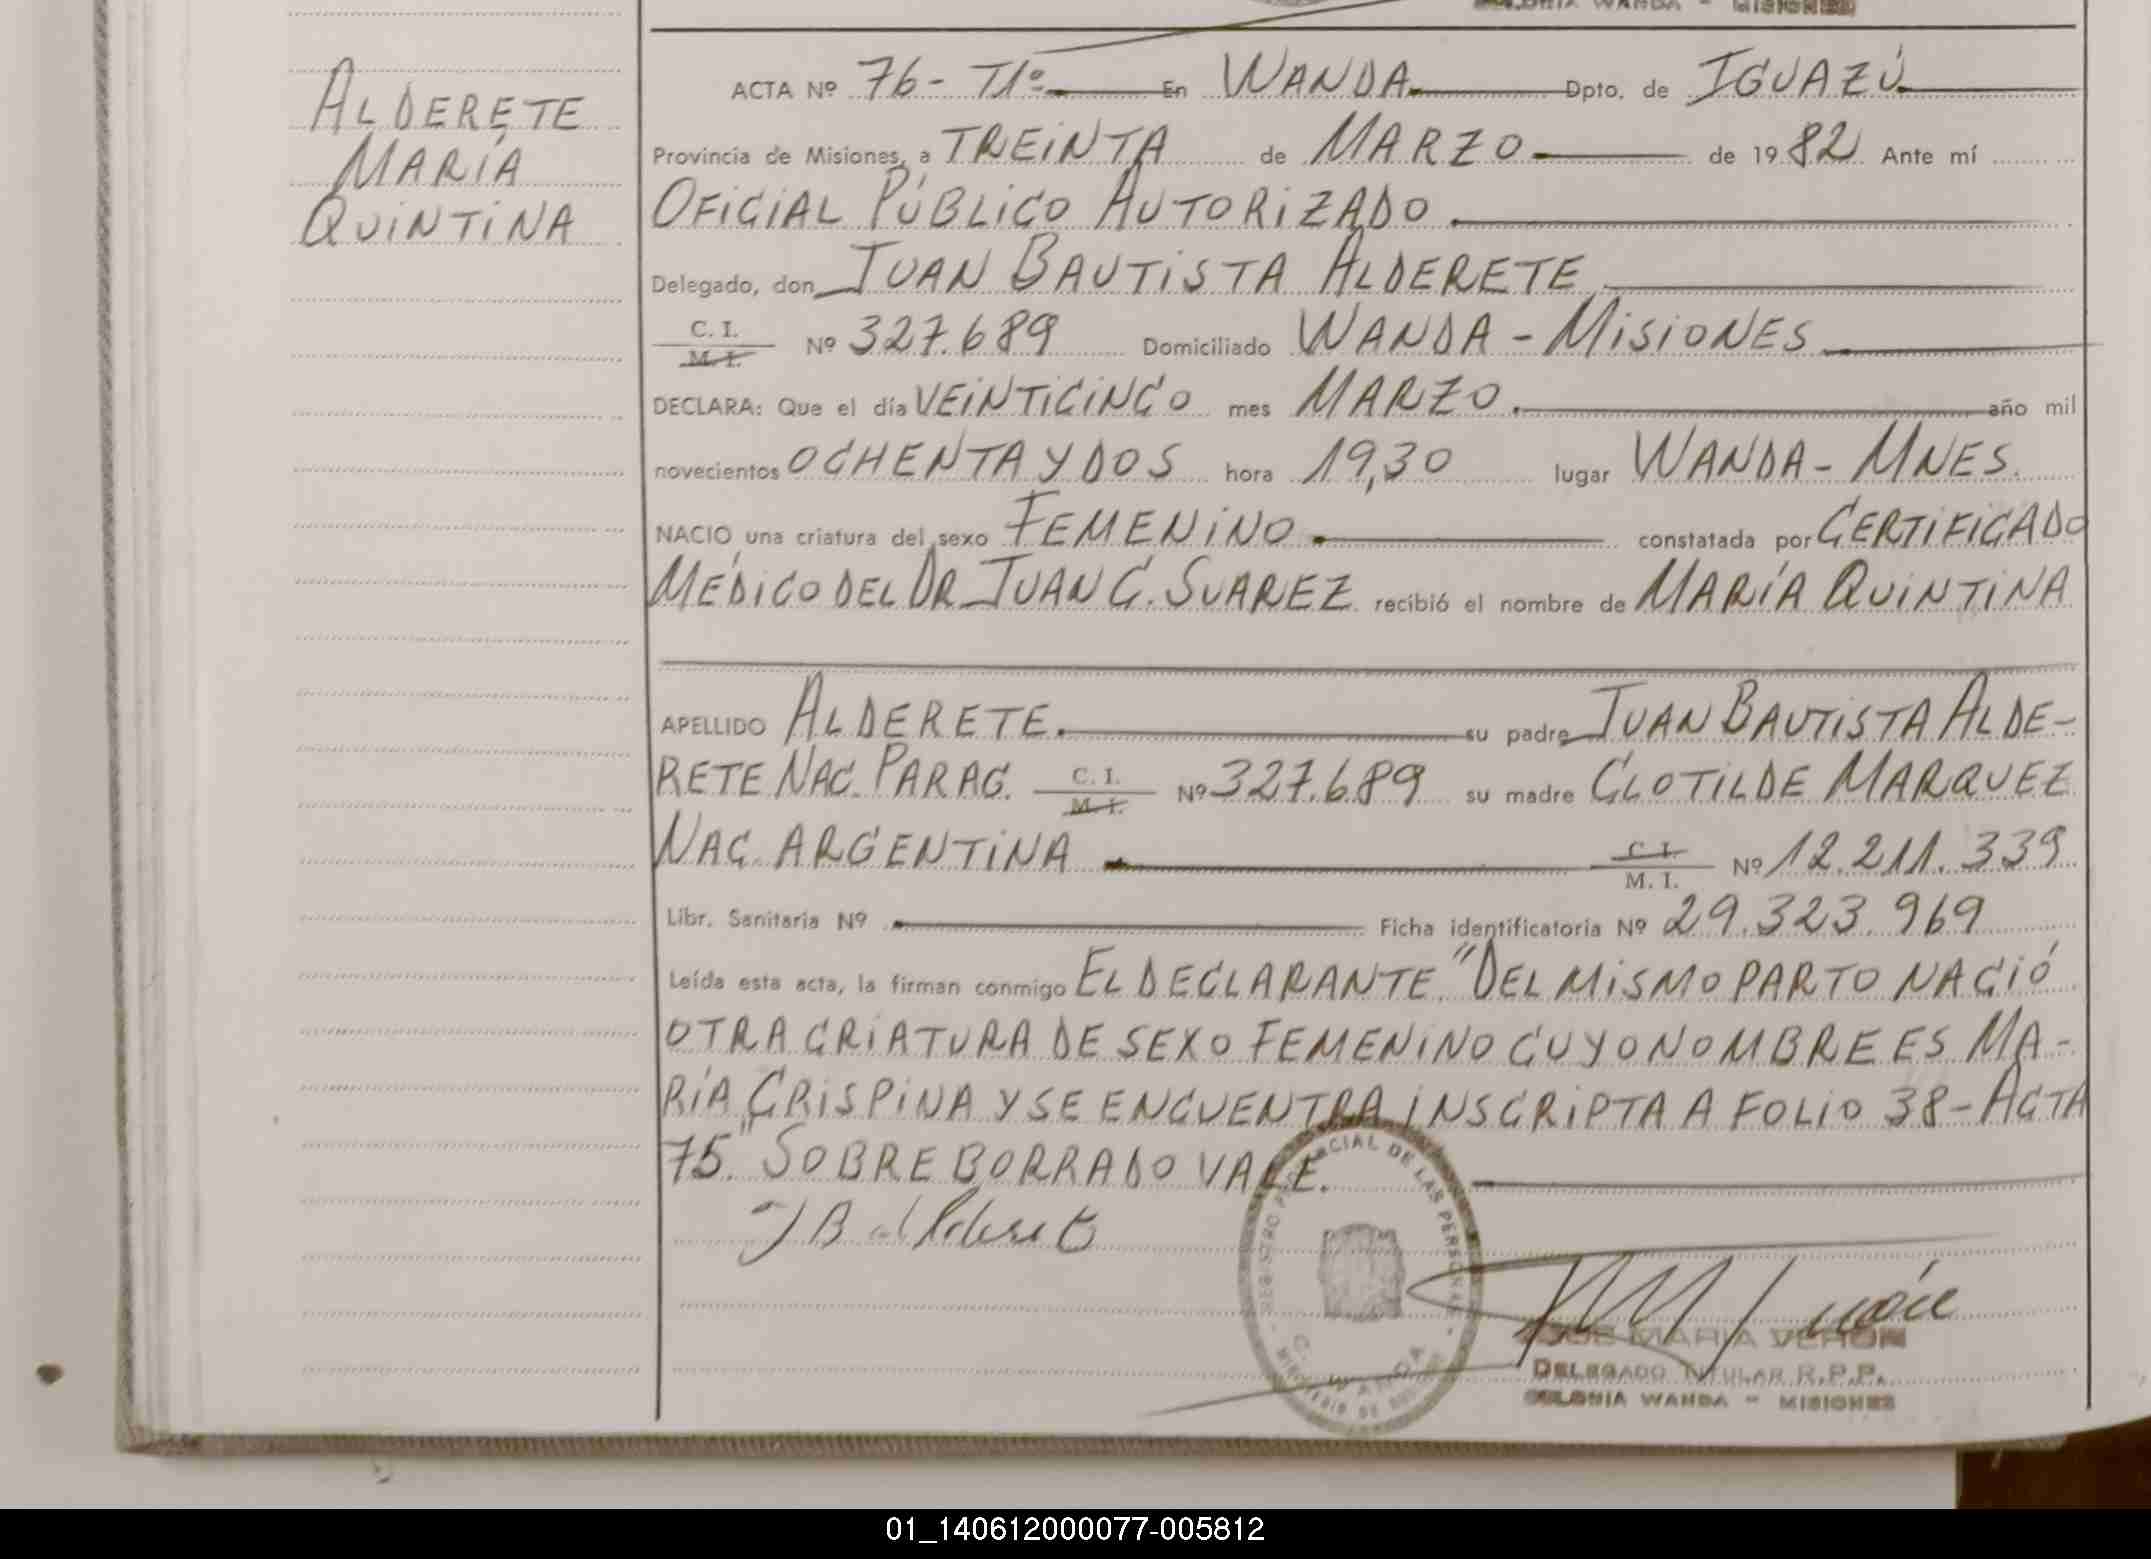 COLONIA WANDA - MISIONES
ALDERETE
MARÍA
QUINTINA
ACTA Nº 76 - T1º En WANDA Dpto. de IGUAZÚ
Provincia de Misiones, a TREINTA de MARZO de 1982 Ante mí
OFICIAL PÚBLICO AUTORIZADO
Delegado, don JUAN BAUTISTA ALDERETE
C. I.
M. I. Nº 327.689 Domiciliado WANDA - MISIONES
DECLARA: Que el día VEINTICINCO mes MARZO. año mil
novecientos OCHENTA Y DOS hora 19,30 lugar WANDA - MNES.
NACIO una criatura del sexo FEMENINO constatada por CERTIFICADO
MÉDICO DEL DR. JUAN C. SUAREZ recibió el nombre de MARÍA QUINTINA
APELLIDO ALDERETE. su padre JUAN BAUTISTA ALDE-
RETE NAC. PARAG. C. I.
M. I. Nº 327.689 su madre CLOTILDE MARQUEZ
NAC. ARGENTINA C. I.
M. I. Nº 12.211.339
Libr. Sanitaria Nº Ficha identificatoria Nº 29.323.969
Leída esta acta, la firman conmigo EL DECLARANTE. "DEL MISMO PARTO NACIÓ
OTRA CRIATURA DE SEXO FEMENINO CUYO NOMBRE ES MA-
RÍA CRISPINA Y SE ENCUENTRA INSCRIPTA A FOLIO 38 - ACTA
75." SOBREBORRADO VALE.
REGISTRO PROVINCIAL DE LAS PERSONAS
C. WANDA
JOSE MARIA VERON
DELEGADO TITULAR R.P.P.
COLONIA WANDA - MISIONES
01_140612000077-005812